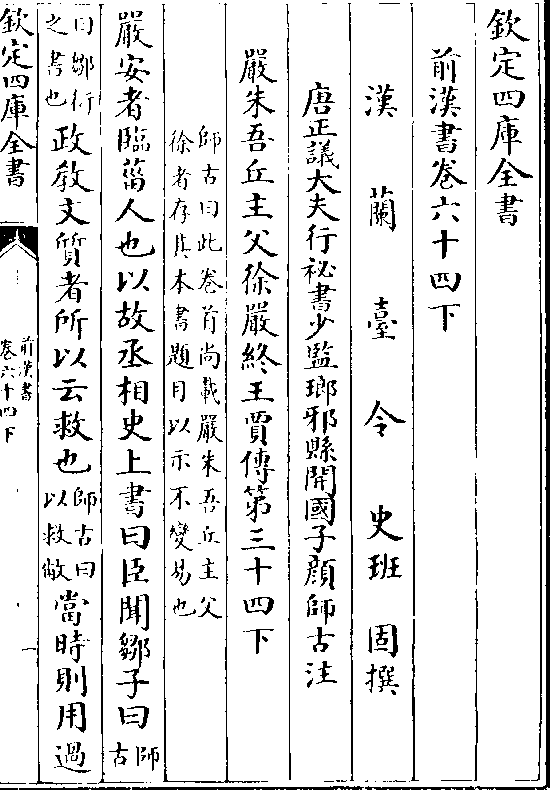 欽定四庫全書
前漢書卷六十四下
漢蘭臺令史班固撰
唐正議大夫行祕書少監瑯邪縣開國子顔師古注
嚴朱吾丘主父徐嚴終王賈傳第三十四下
師古曰此卷首尚載嚴朱吾丘主父
徐者存其本書題目以示不變易也
嚴安者臨菑人也以故丞相史上書曰臣聞鄒子曰師古
曰鄒衍之書也政教文質者所以云救也師古曰以救敝當時則用過
欽定四庫全書
前漢書
卷六十四下
一